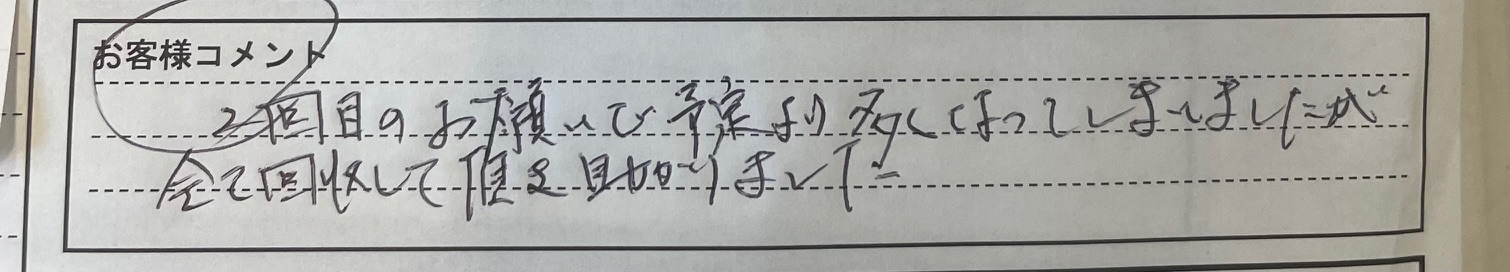 お客様コメント
2回目のお願いで予定より多くなってしまいましたが
全て回収して頂き助かりました